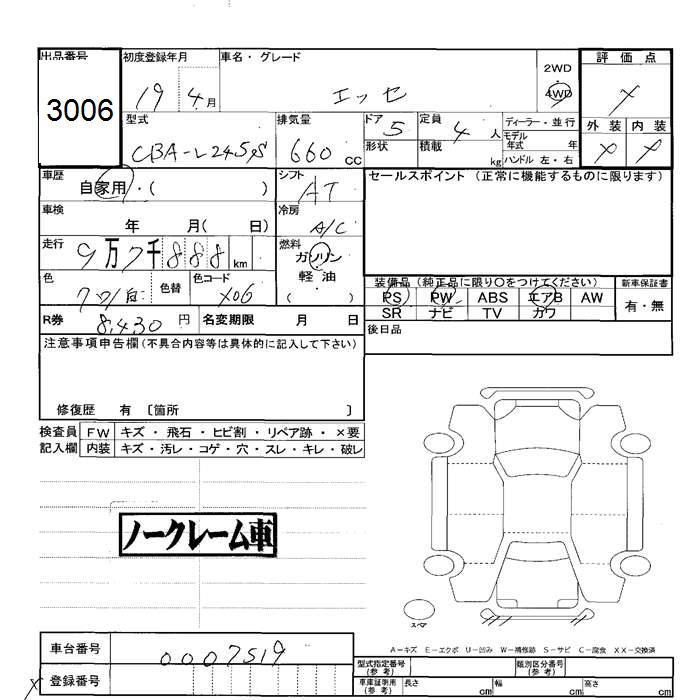 出品番号 初度登録年月 車名・グレード 2WD 評価点
3006 19 4月 エッセ 4WD
型式 排気量 ドア 5 定員 4人 ディーラー・並行 外装 内装
CBA-L245S 660 cc 形状 積載 kg モデル年式 年
ハンドル 左・右
車歴 自家用・( ) シフト AT セールスポイント (正常に機能するものに限ります)
車検 年 月( 日) 冷房 A/C
走行 9万7千888km 燃料 ガソリン
軽油
( )
色 色替 色コード X06 装備品 (純正品に限り〇をつけてください) 新車保証書
PS PW ABS エアB AW 有・無
SR ナビ TV カワ
R券 8,430円 名変期限 月 日 後日品
注意事項申告欄(不具合内容等は具体的に記入して下さい)
修復歴 有 〔箇所 〕
検査員 FW キズ・飛石・ヒビ割・リペア跡・×要
記入欄 内装 キズ・汚レ・コゲ・穴・スレ・キレ・破レ
ノークレーム車
スペア
A-キズ E-エクボ U-凹み W-補修跡 S-サビ C-腐食 XX-交換済
車台番号 0007519 型式指定番号(参考) 類別区分番号(参考)
登録番号 車庫証明用(参考) 長さ cm 幅 cm 高さ cm